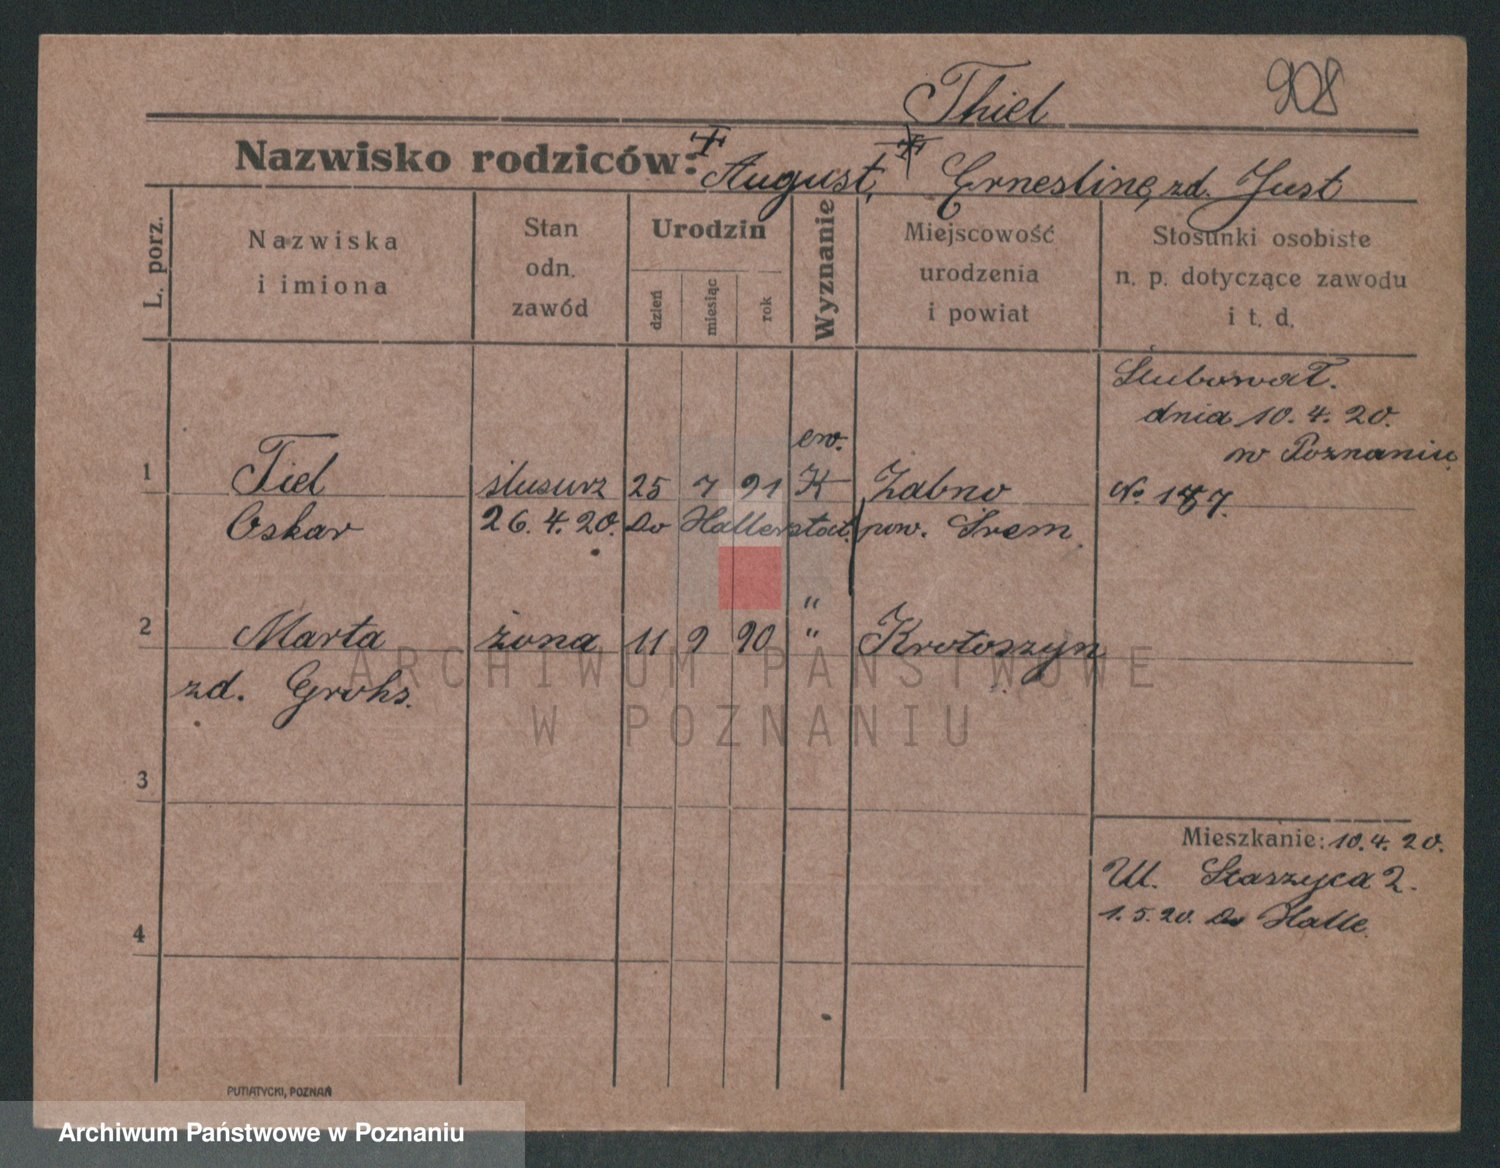 Thiel 908
Nazwisko rodziców: August, Ernestine, zd. Just
L. porz.
Nazwiska
i imiona
Stan
odn.
zawód
Urodzin
dzień
miesiąc
rok
Wyznanie
Miejscowość
urodzenia
i powiat
Stosunki osobiste
n. p. dotyczące zawodu
i t. d.
Ślubował.
dnia 10. 4. 20.
w Poznaniu
ew.
1 Tiel ślusarz 25 7 91 K Żabno No 187.
Oskar 26. 4. 20. do pow. Śrem.
"
2 Marta żona 11 9 90 " Krotoszyn
zd. Grohs.
ARCHIWUM PAŃSTWOWE
W POZNANIU
3
Mieszkanie: 10. 4. 20.
Ul. Staszyca 2.
1. 5. 20. do Halle.
4
PUTIATYCKI, POZNAŃ
Archiwum Państwowe w Poznaniu